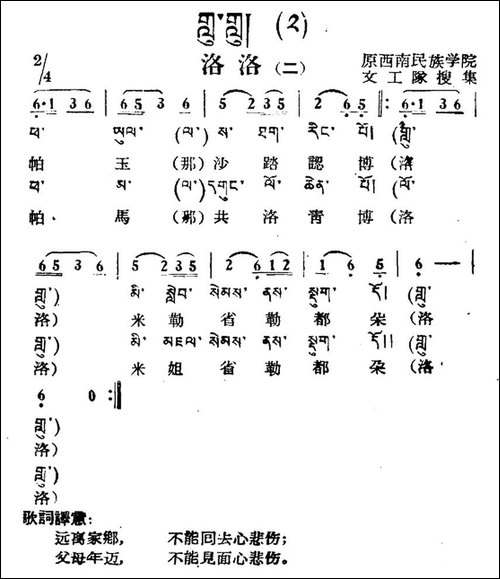 (༢)
洛洛（二）
2/4
原西南民族学院
文工隊搜集
6·1 3 6 | 6 5 3 6 | 5 2 3 5 | 2 6 5 |: 6·1 3 6 |
ཕ་ ཡུལ་ (ལ་) ས་ ཐག་ རིང་ པོ།
帕 玉 (那) 沙 踏 認 博 (洛
ཕ་ མ་ (ལ་) དགུང་ ལོ་ ཆེན་ པོ།
帕 馬 (那) 共 洛 青 博 (洛
6 5 3 6 | 5 2 3 5 | 2 6 1 2 | 1 6 5 | 6 — |
མི་ སླེབ་ སེམས་ ནས་ སྡུག་ ཏོ།
洛) 米 勒 省 勒 都 朵 (洛
མི་ མཇལ་ སེམས་ ནས་ སྡུག་ ཏོ།།
洛) 米 姐 省 勒 都 朵 (洛
6 0 :|
洛)
洛)
歌詞譯意:
远离家鄉, 不能回去心悲伤;
父母年迈, 不能見面心悲伤。